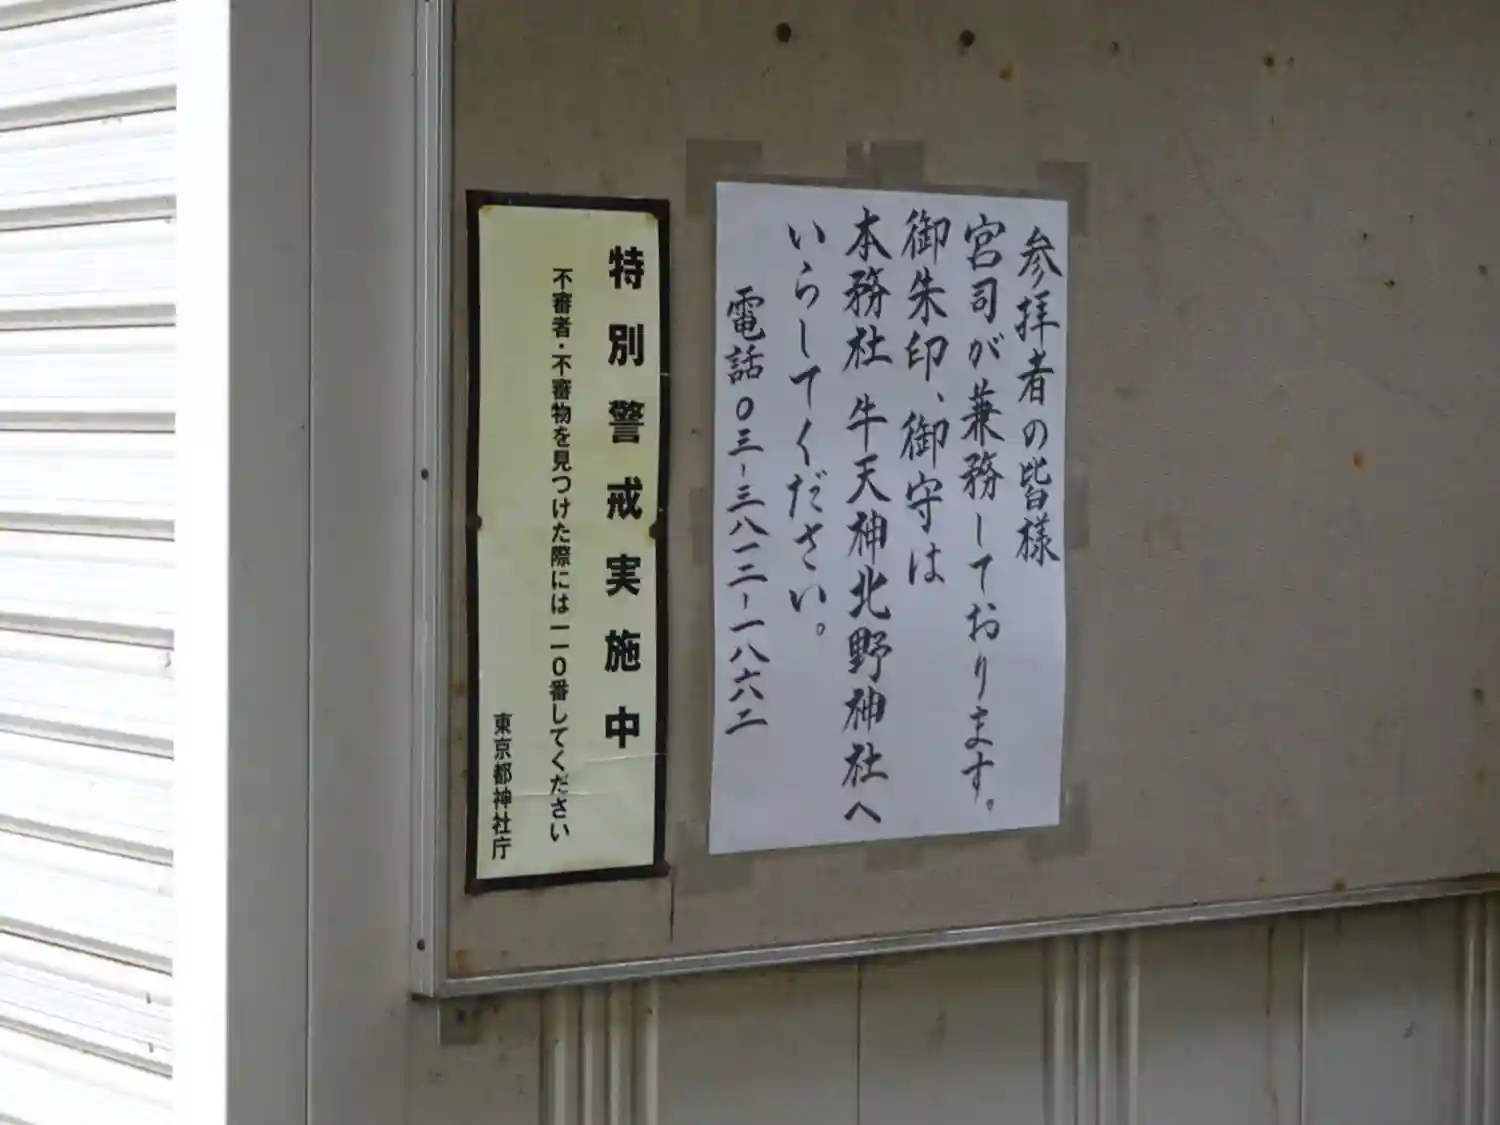 参拝者の皆様
宮司が兼務しております。
御朱印、御守は
本務社 牛天神北野神社へ
いらしてください。
電話〇三-三八一二-一八六二
特別警戒実施中
不審者・不審物を見つけた際には一一〇番してください
東京都神社庁